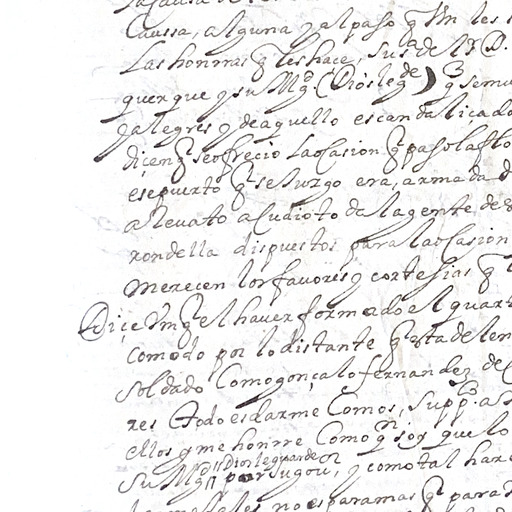 Caussa, alguna y al paso q Vm les
Las honrras q les hace, Sus de l
quer que y su Mgd. (Dios le gde) q se mu
y alegres y de aquello escandaliçado
diçen q se ofrecio La ocasion q paso la flo
ese puerto q se Juzgo era, armada d
a levato acudio toda la gente de
rondella dispuestos para la ocasion
merecen los favores y cortesias q
Diçe Vm q el haver formado el quart
comodo por lo distante q esta de le
soldado Como gonçalo fernandez de C
res todo es darme Como s, suppco. a V
ellos y me honrre Como qn soy que lo
Su Mgd "Dios le guarde" por su gou, y como tal hare
no es para mas q para